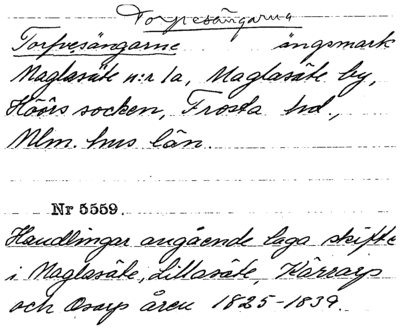 Torpesängarna
Torpesängarne ängsmark
Maglasäte n:r 1a, Maglasäte by,
Höörs socken, Frosta hd.,
Mlm. hus län.
Nr 5559.
Handlingar angående laga skifte
i Maglasäte, Lillasäte, Kärrarp
och Osarp åren 1825-1839.